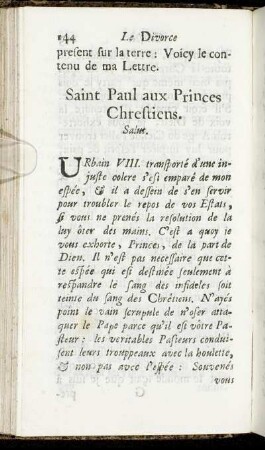 144 Le Divorce
present sur la terre : Voicy le con-
tenu de ma Lettre.
Saint Paul aux Princes
Chrestiens.
Salut.
URbain VIII. transporté d'une in-
juste colere s'est emparé de mon
espée, & il a dessein de s'en servir
pour troubler le repos de vos Estats,
si vous ne prenés la resolution de la
luy ôter des mains. C'est a quoy je
vous exhorte, Princes, de la part de
Dieu. Il n'est pas necessaire que cet-
te espée qui est destinée seulement à
respandre le sang des infideles soit
teinte du sang des Chrétiens. N'ayés
point le vain scrupule de n'oser atta-
quer le Pape parce qu'il est vôtre Pa-
steur : les veritables Pasteurs condui-
sent leurs trouppeaux avec la houlette,
& non pas avec l'espée : Souvenés
vous